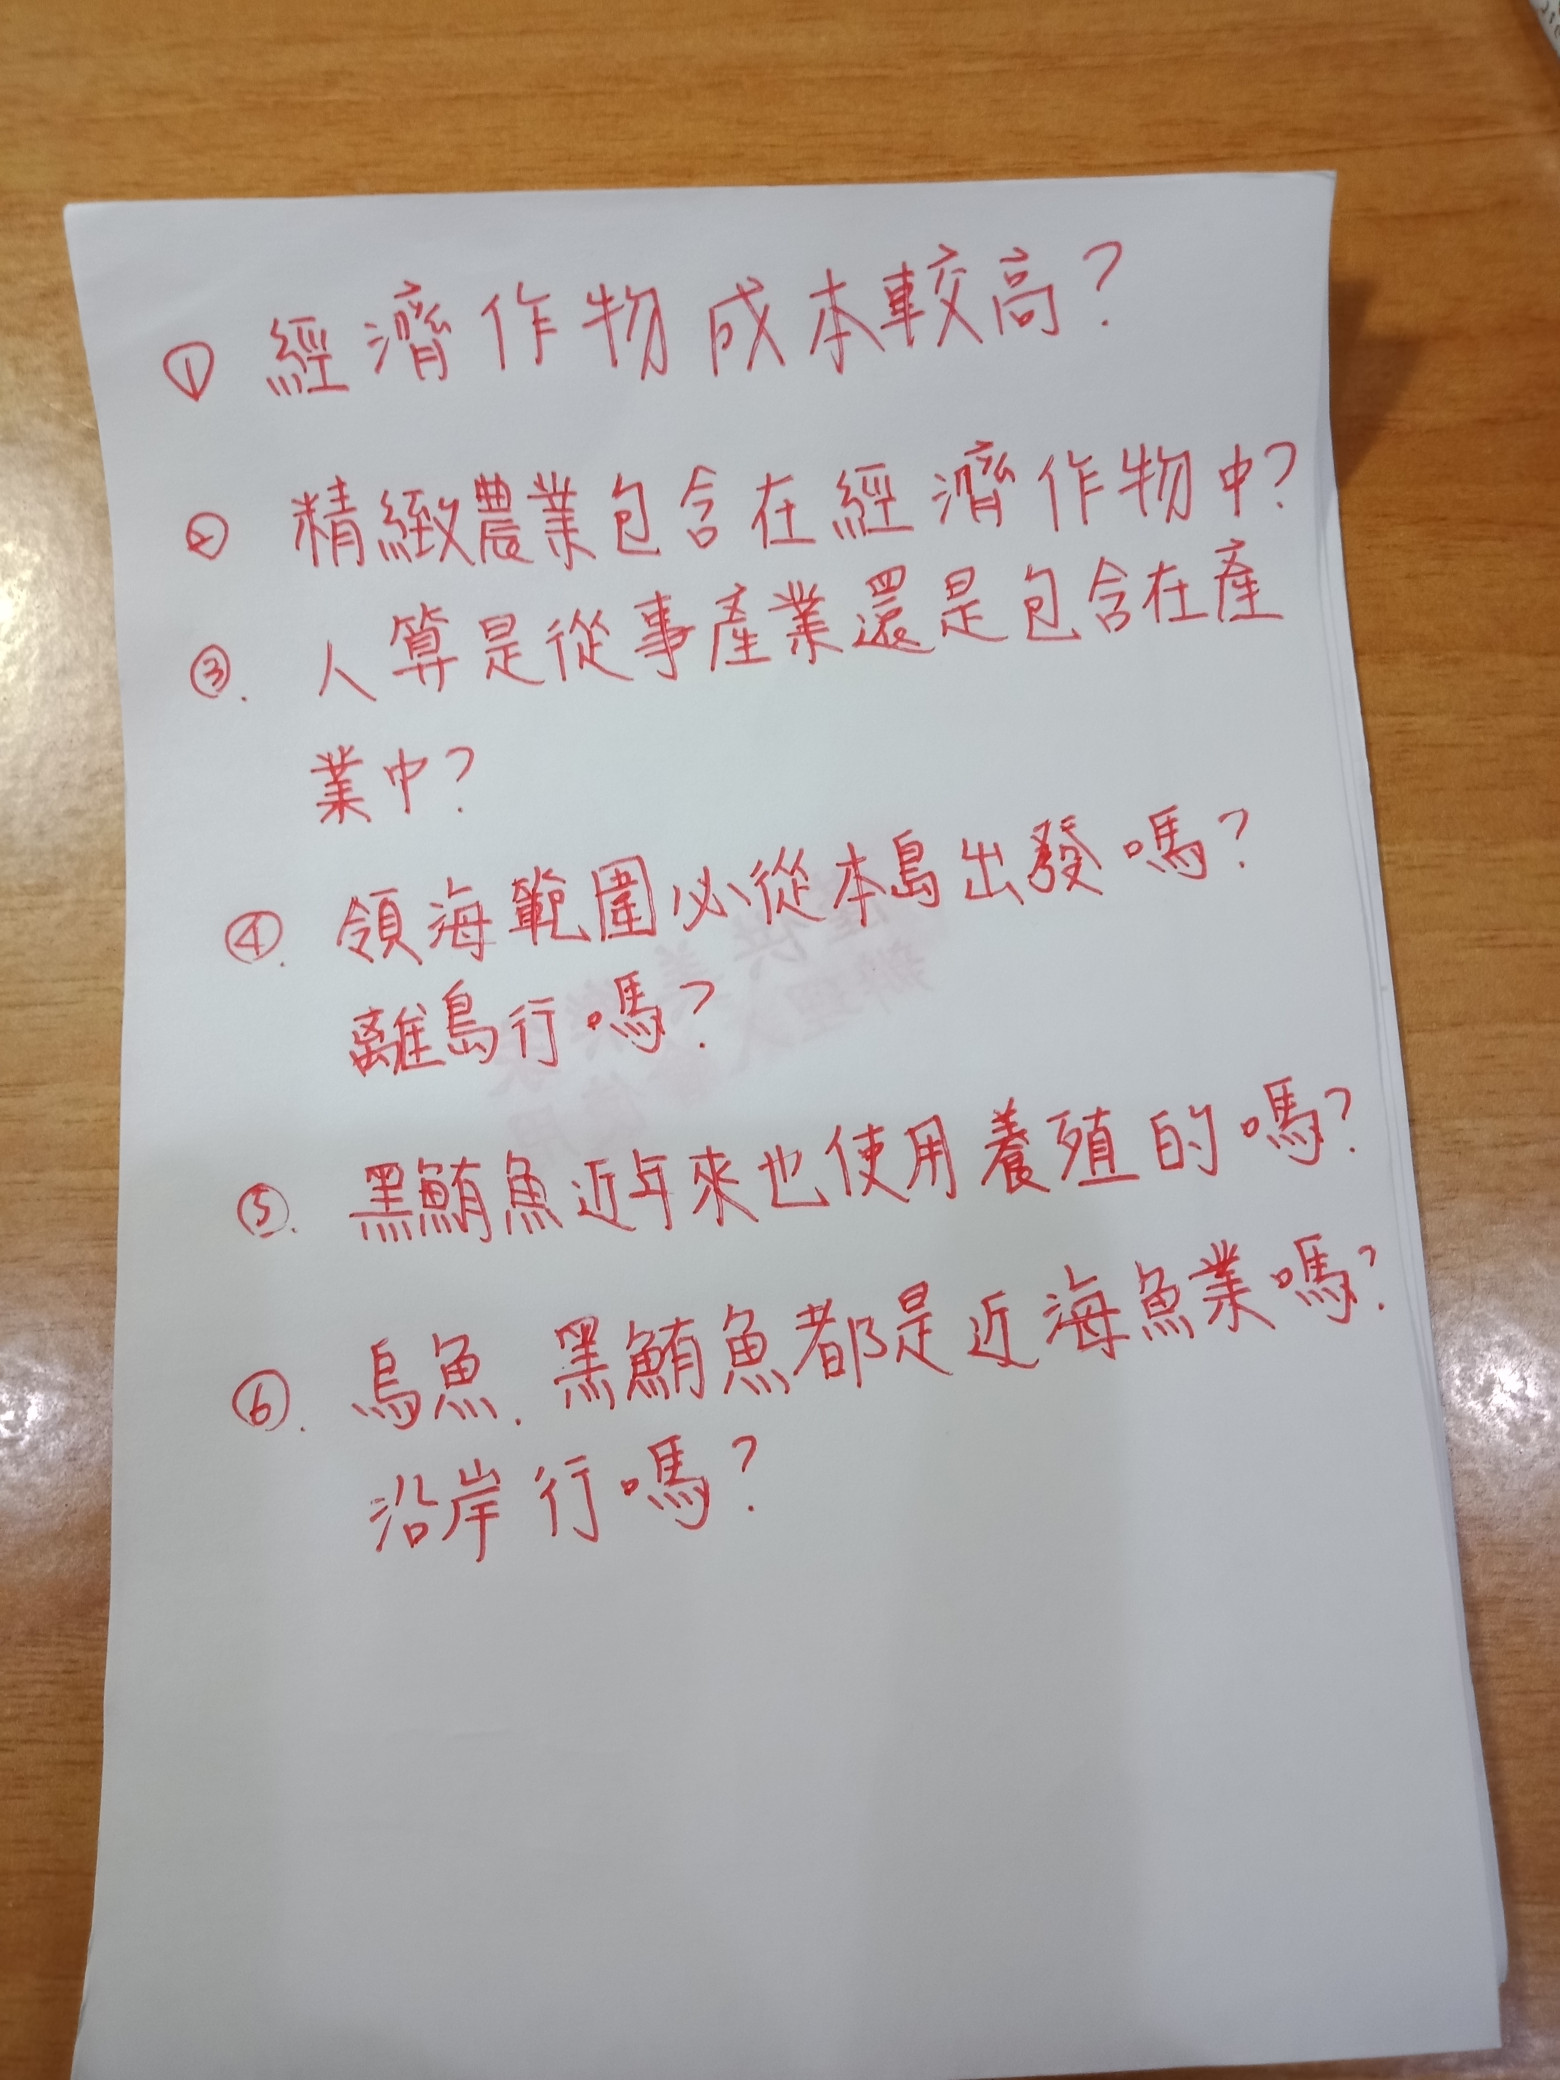 ① 經濟作物成本較高?
② 精緻農業包含在經濟作物中?
③. 人算是從事產業還是包含在產
業中?
④. 領海範圍必從本島出發嗎?
離島行嗎?
⑤. 黑鮪魚近年來也使用養殖的嗎?
⑥. 烏魚、黑鮪魚都是近海魚業嗎?
沿岸行嗎?